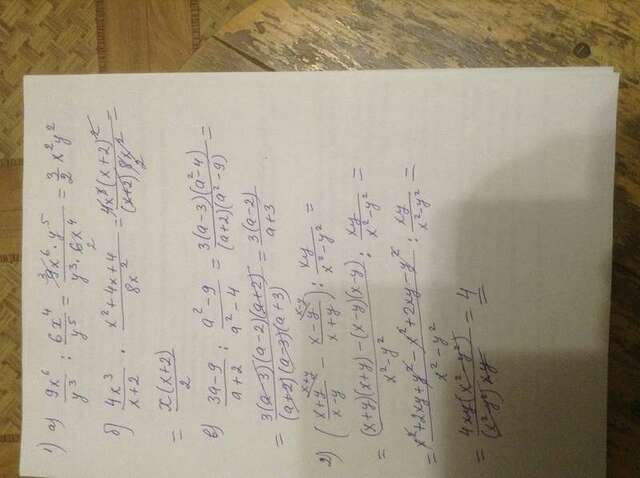 1) а) 9x⁶/y³ : 6x⁴/y⁵ = 9x⁶·y⁵/y³·6x⁴ = 3/2 x²y²
б) 4x³/x+2 · x²+4x+4/8x² = 4x³(x+2)²/(x+2)8x² =
= x(x+2)/2
в) 3a-9/a+2 : a²-9/a²-4 = 3(a-3)(a²-4)/(a+2)(a²-9) =
= 3(a-3)(a-2)(a+2)/(a+2)(a-3)(a+3) = 3(a-2)/a+3
2) (x+y/x-y - x-y/x+y) : xy/x²-y² =
= (x+y)(x+y)-(x-y)(x-y)/x²-y² : xy/x²-y² =
= x²+2xy+y²-x²+2xy-y²/x²-y² : xy/x²-y² =
= 4xy(x²-y²)/(x²-y²)xy = 4